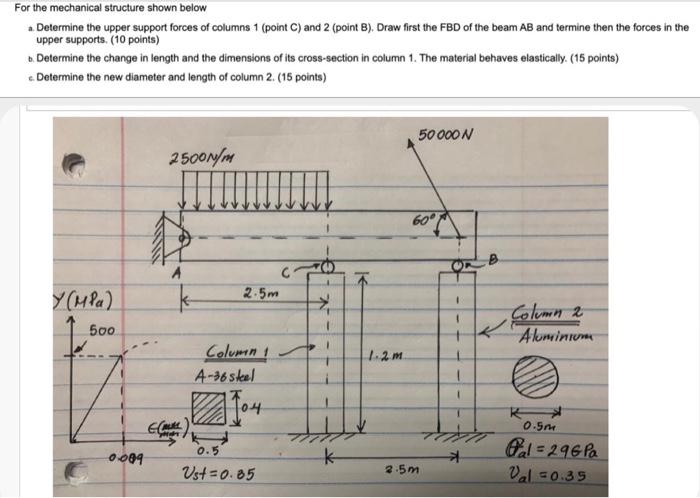 For the mechanical structure shown below
a. Determine the upper support forces of columns 1 (point C) and 2 (point B). Draw first the FBD of the beam AB and termine then the forces in the
upper supports. (10 points)
b. Determine the change in length and the dimensions of its cross-section in column 1. The material behaves elastically. (15 points)
c. Determine the new diameter and length of column 2. (15 points)
50000N
2500N/m
60°
A
C
B
2.5m
Y(MPa)
500
Column 2
Aluminium
Column 1
A-36 steel
1.2m
0.4
0.5
0.009
0.5m
2.5m
al = 29GPa
Vst = 0.35
Val = 0.35